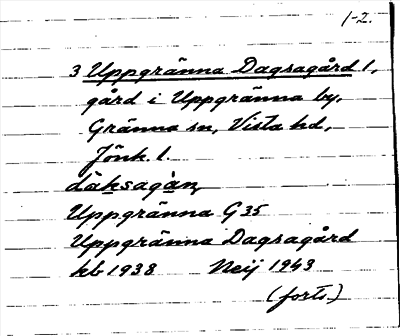 1-2.
3 Uppgränna Dagsagård 1,
gård i Uppgränna by,
Gränna sn, Vista hd,
Jönk. l.
dàksagàn,
Uppgränna G 35
Uppgränna Dagsagård
kb 1938 Neij 1943
(forts.)